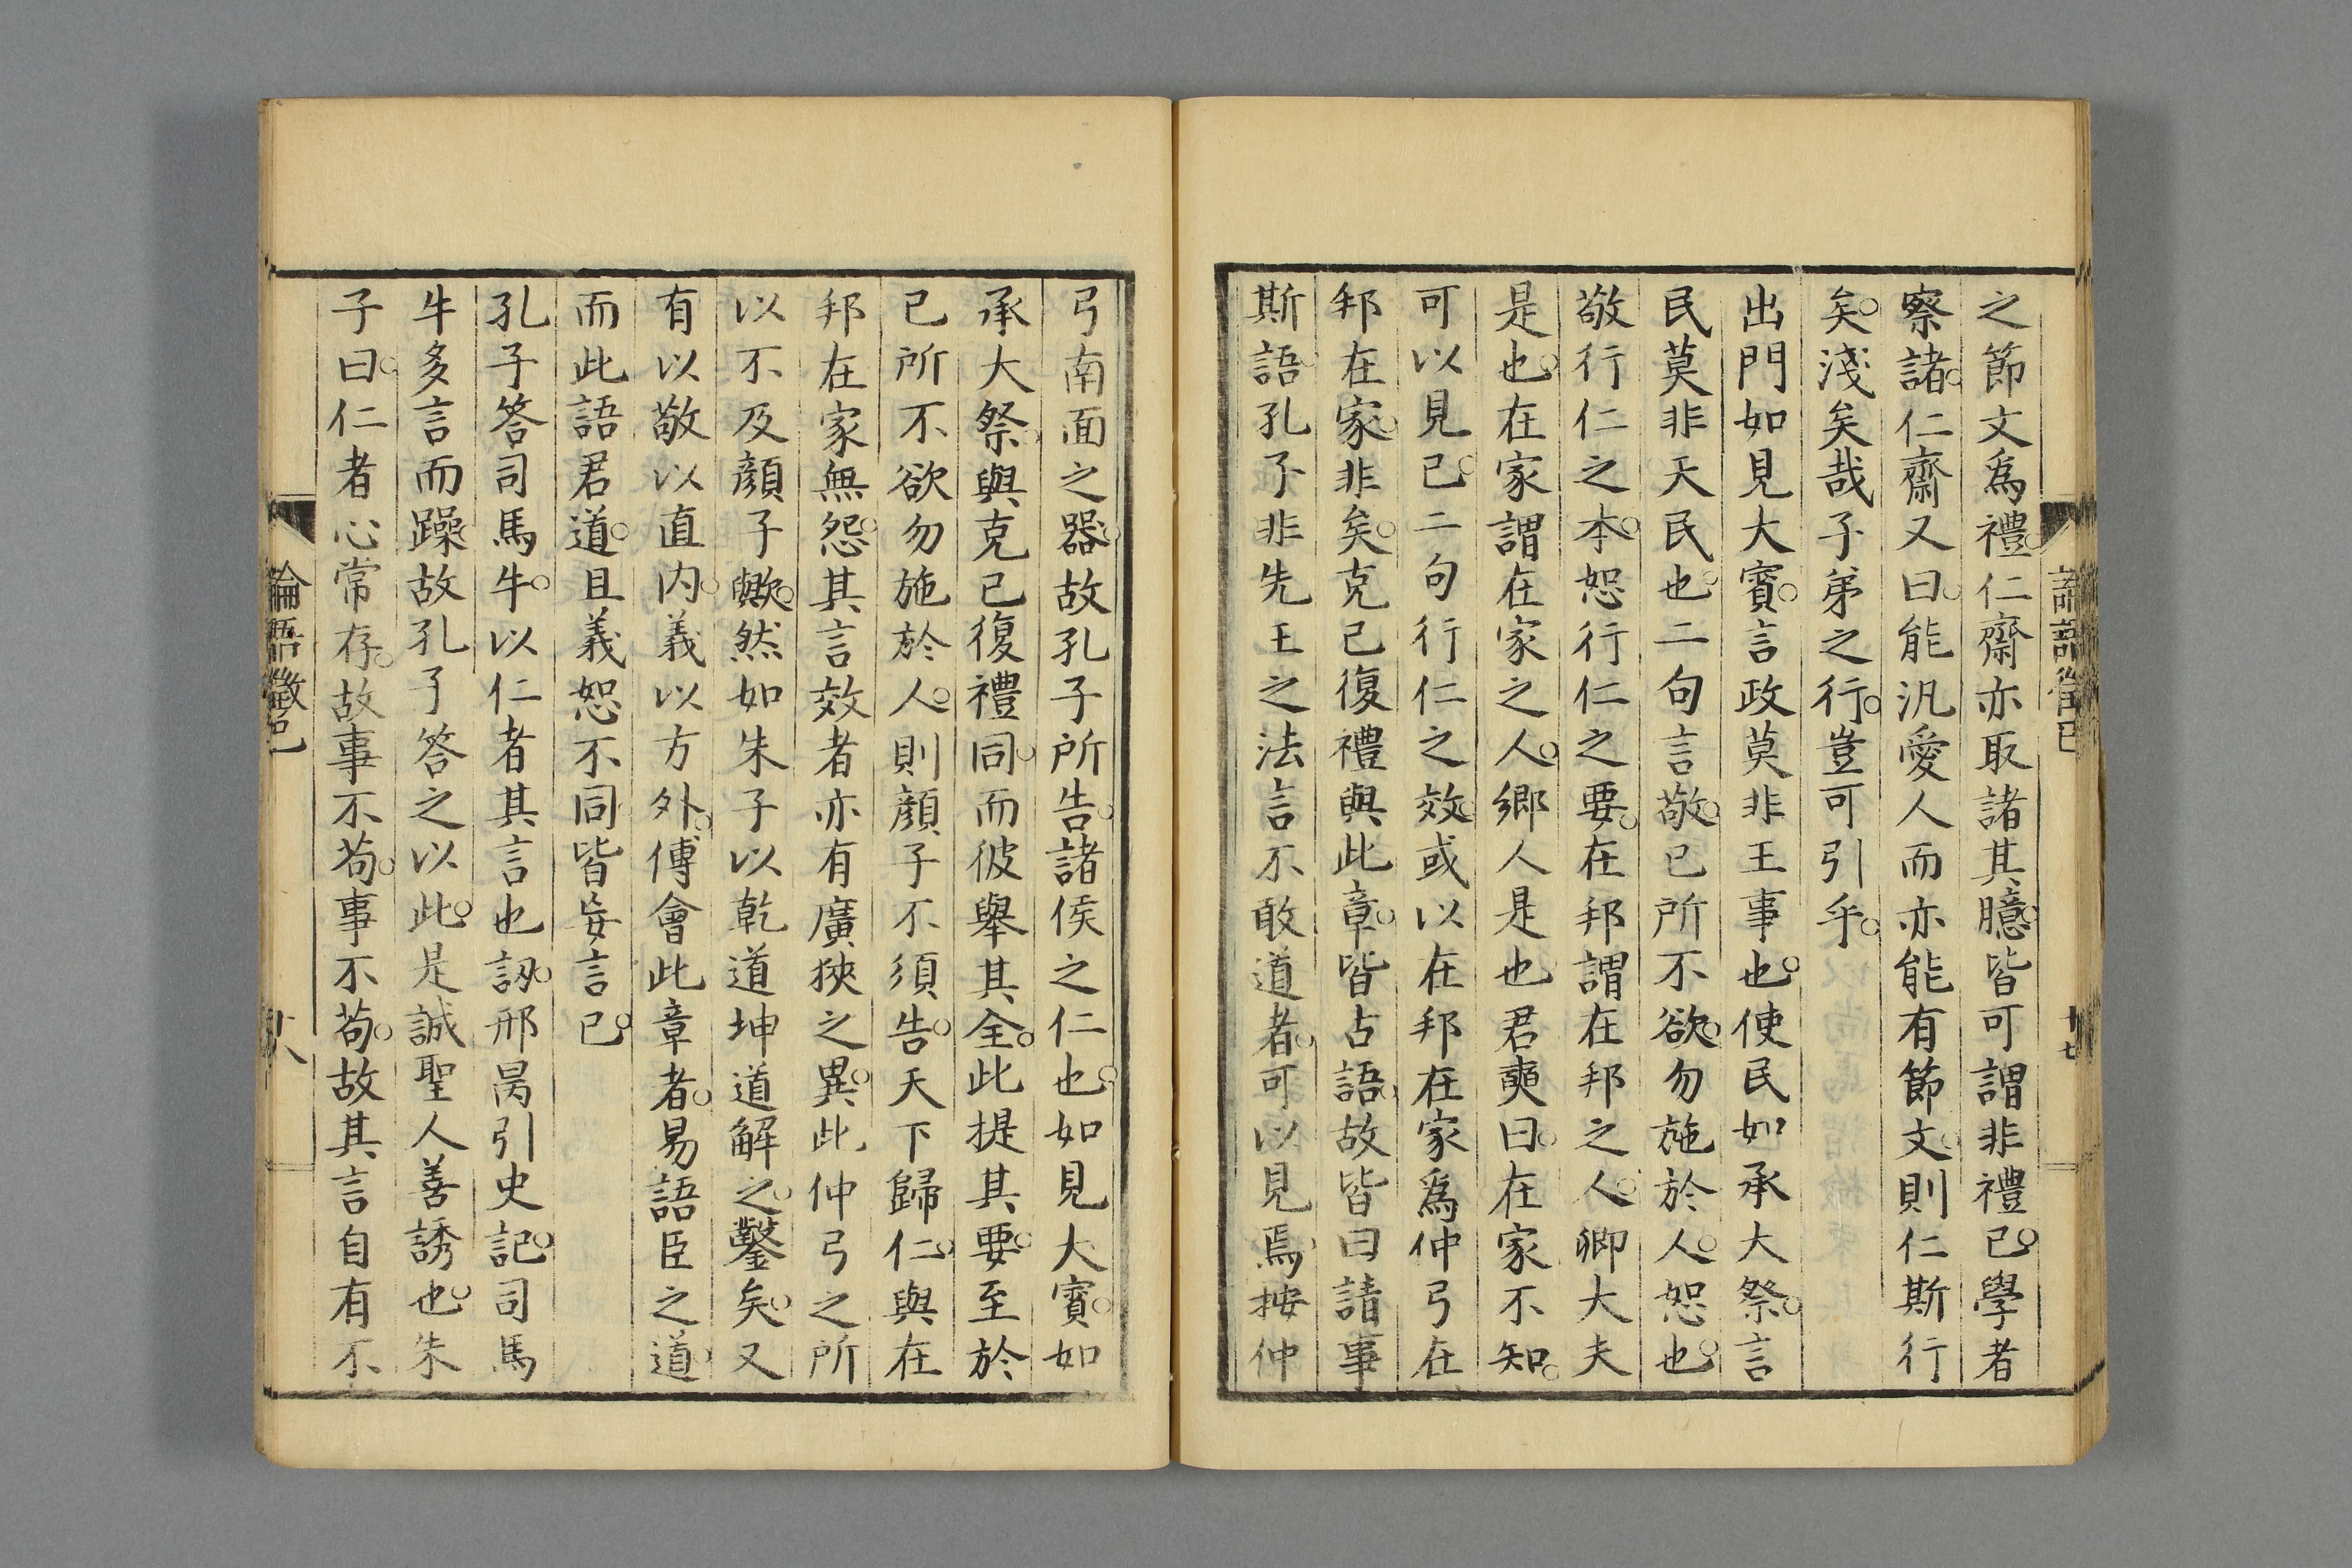 之節文爲禮仁齋亦取諸其臆皆可謂非禮已學者
察諸仁齋又曰能汎愛人而亦能有節文則仁斯行
矣淺矣哉子弟之行豈可引乎
出門如見大賓言政莫非王事也使民如承大祭言
民莫非天民也二句言敬己所不欲勿施於人恕也
敬行仁之本恕行仁之要在邦謂在邦之人卿大夫
是也在家謂在家之人鄉人是也君奭曰在家不知
可以見已二句行仁之效或以在邦在家爲仲弓在
邦在家非矣克己復禮與此章皆古語故皆曰請事
斯語孔子非先王之法言不敢道者可以見焉按仲
弓南面之器故孔子所告諸侯之仁也如見大賓如
承大祭與克己復禮同而彼舉其全此提其要至於
己所不欲勿施於人則顏子不須告天下歸仁與在
邦在家無怨其言效者亦有廣狹之異此仲弓之所
以不及顏子歟然如朱子以乾道坤道解之鑿矣又
有以敬以直内義以方外傅會此章者易語臣之道
而此語君道且義恕不同皆妄言已
孔子答司馬牛以仁者其言也訒邢昺引史記司馬
牛多言而躁故孔子答之以此是誠聖人善誘也朱
子曰仁者心常存故事不苟事不苟故其言自有不
論語徵己
十八